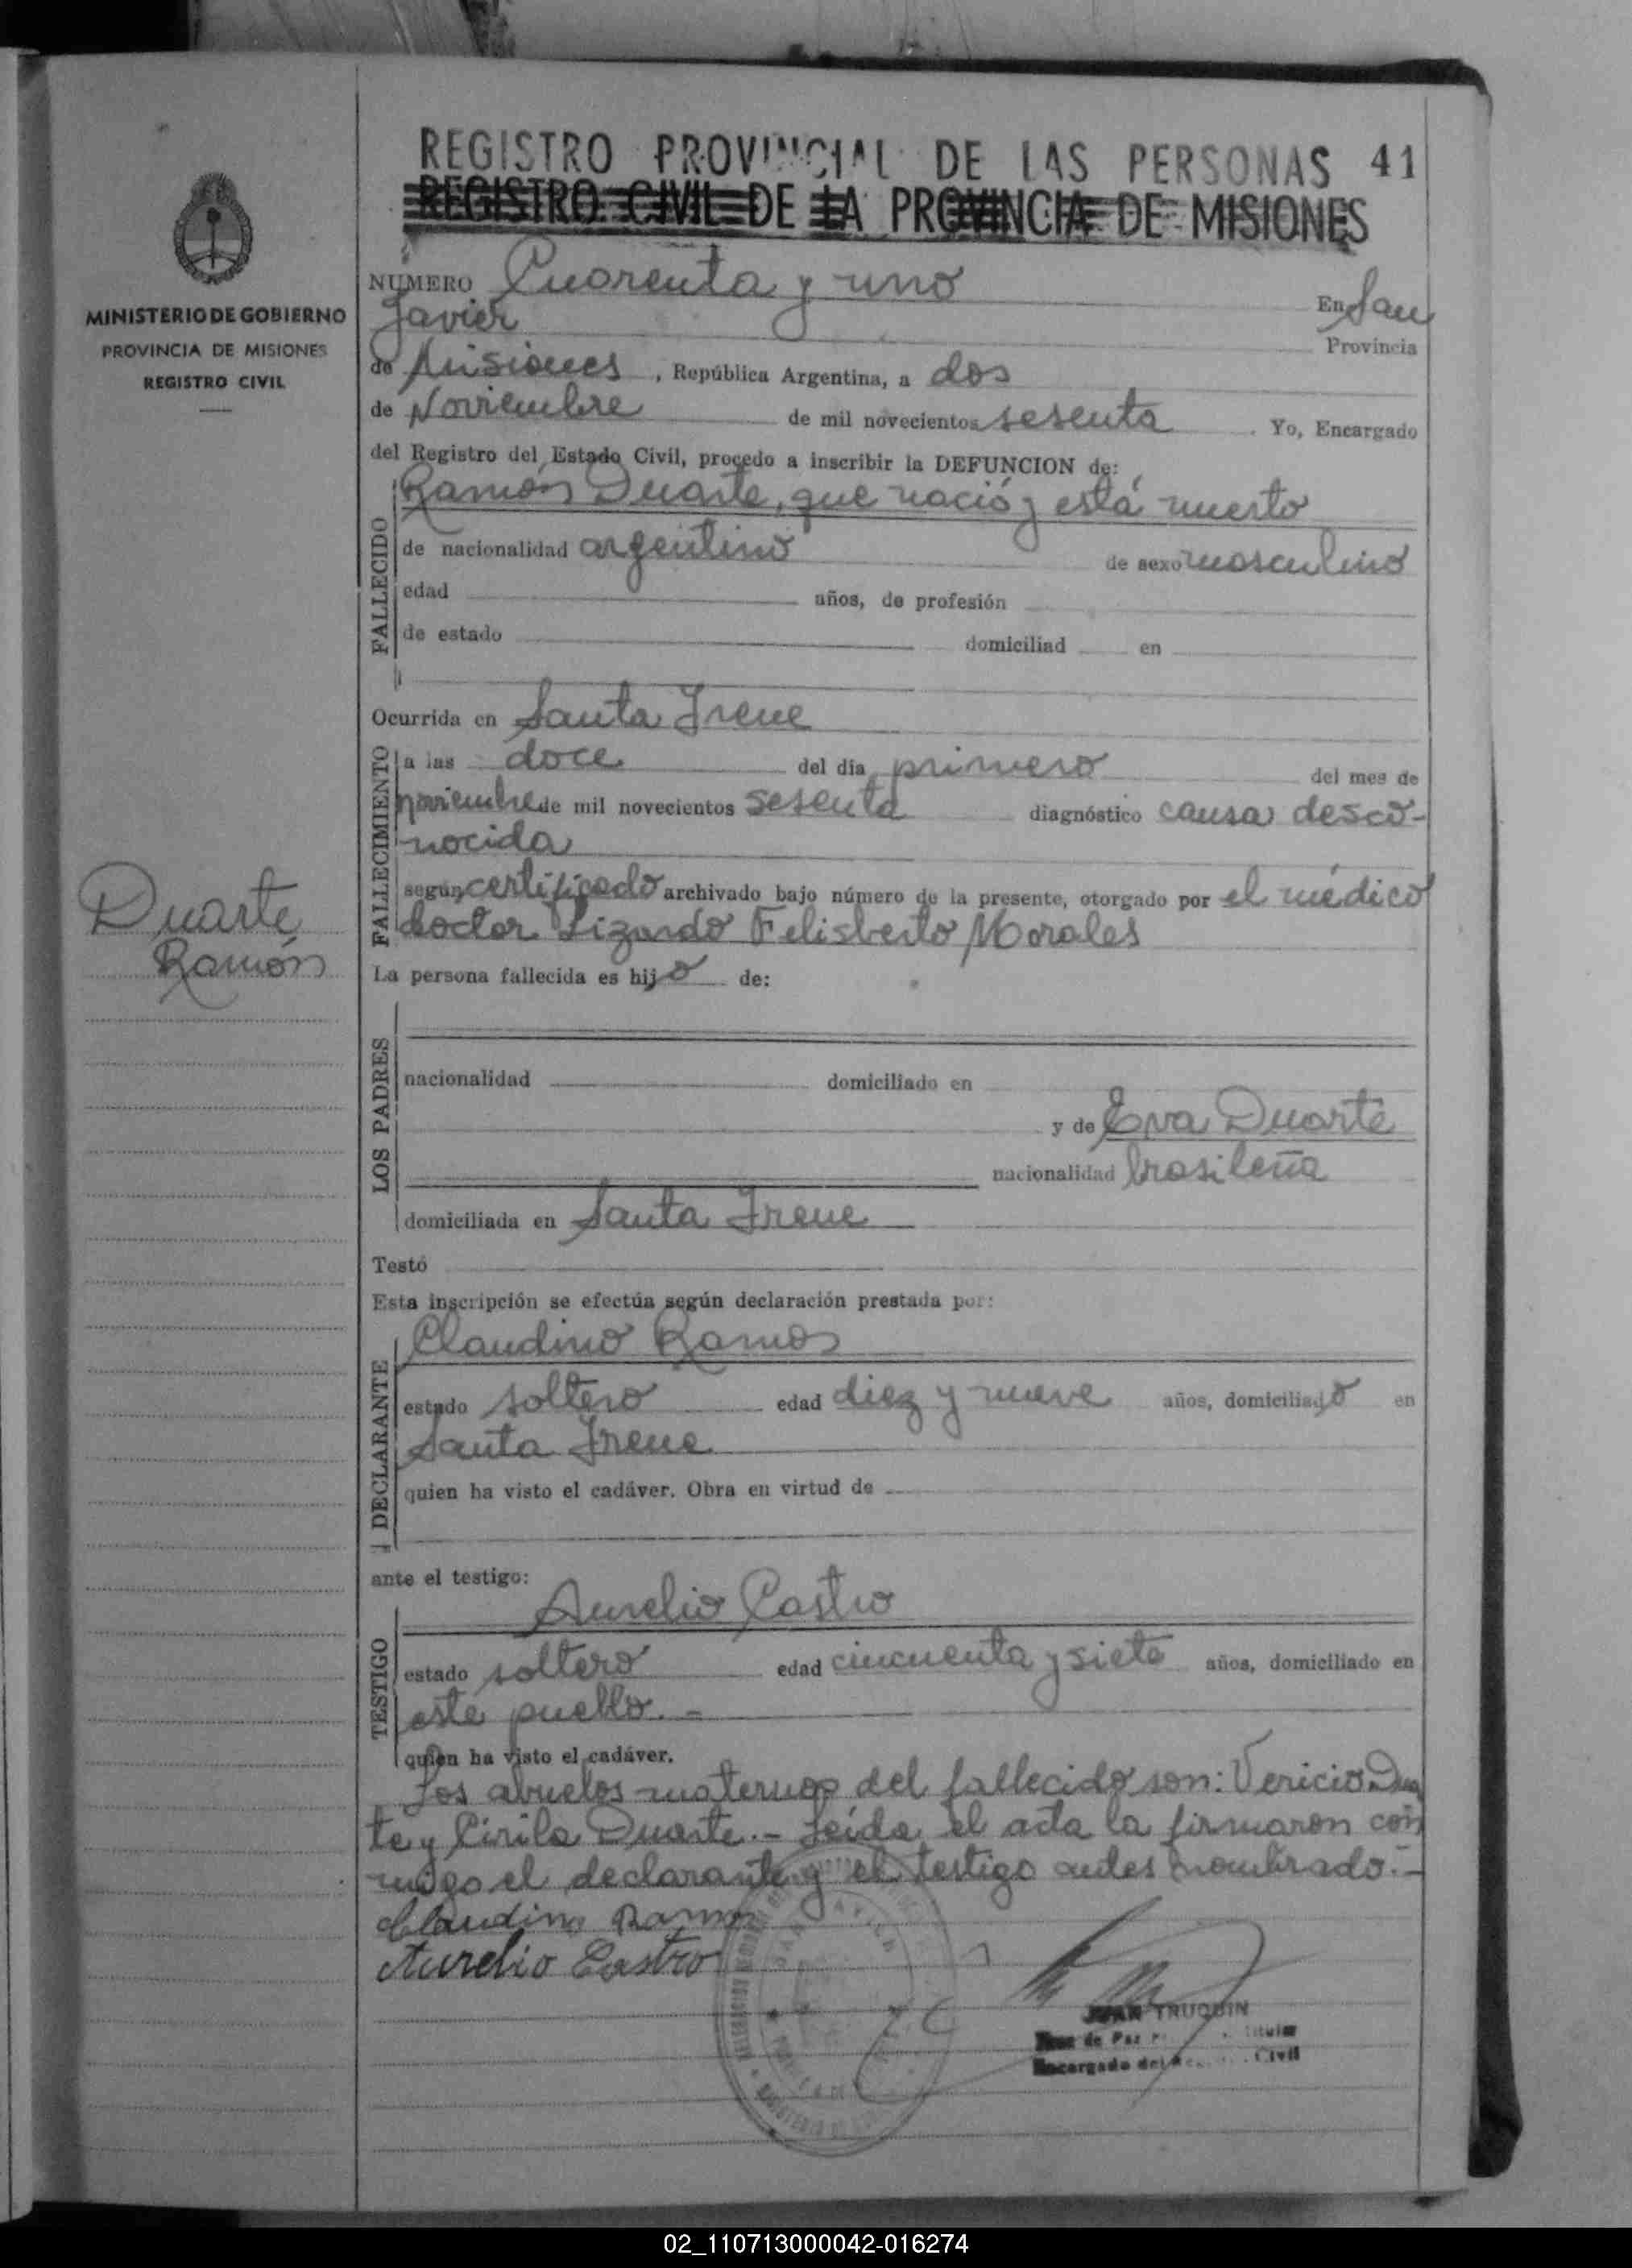 REGISTRO PROVINCIAL DE LAS PERSONAS 41
REGISTRO CIVIL DE LA PROVINCIA DE MISIONES
MINISTERIO DE GOBIERNO
PROVINCIA DE MISIONES
REGISTRO CIVIL
NUMERO Cuarenta y uno En San
Javier Provincia
de Misiones, República Argentina, a dos
de Noviembre de mil novecientos sesenta. Yo, Encargado
del Registro del Estado Civil, procedo a inscribir la DEFUNCION de:
FALLECIDO
Ramón Duarte, que nació y está muerto
de nacionalidad argentino de sexo masculino
edad años, de profesión
de estado domiciliad en
Ocurrida en Santa Irene
FALLECIMIENTO
a las doce del día primero del mes de
noviembre de mil novecientos sesenta diagnóstico causa desco-
nocida
según certificado archivado bajo número de la presente, otorgado por el médico
doctor Lizardo Felisberto Morales
Duarte
Ramón
La persona fallecida es hijo de:
LOS PADRES
nacionalidad domiciliado en
y de Eva Duarte
nacionalidad brasileña
domiciliada en Santa Irene
Testó
Esta inscripción se efectúa según declaración prestada por:
DECLARANTE
Claudino Ramos
estado soltero edad diez y nueve años, domiciliado en
Santa Irene
quien ha visto el cadáver. Obra en virtud de
ante el testigo:
TESTIGO
Aurelio Castro
estado soltero edad cincuenta y siete años, domiciliado en
este pueblo.-
quien ha visto el cadáver.
Los abuelos maternos del fallecido son: Vericio Duar
te y Cirila Duarte.- Leída el acta la firmaron con
migo el declarante y el testigo antes nombrado.-
Claudino Ramos
Aurelio Castro
JUAN TRUQUIN
Juez de Paz
Encargado del Civil
02_110713000042-016274